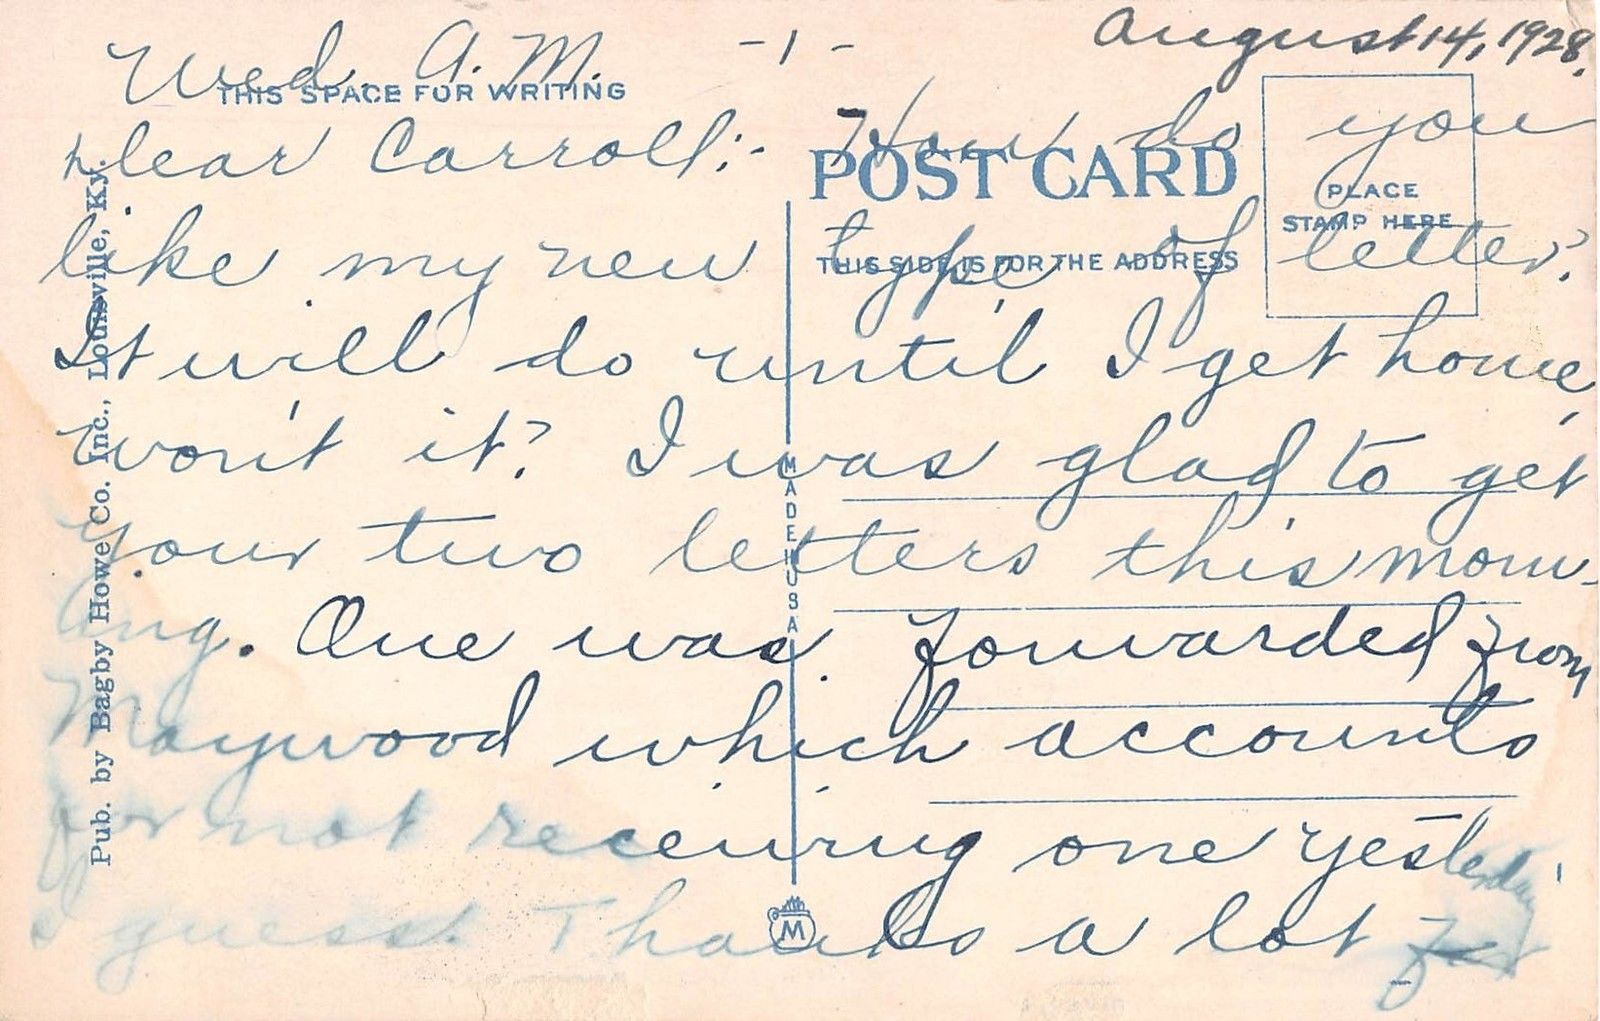 Wed. A.M. -1- August 14, 1928.
THIS SPACE FOR WRITING
Dear Carroll:- How do you
POST CARD
PLACE
STAMP HERE
like my new type of letter?
THIS SIDE IS FOR THE ADDRESS
It will do until I get home,
won't it? I was glad to get
your two letters this morn-
ing. One was forwarded from
Maywood which accounts
for not receiving one yesterday
I guess. Thanks a lot for
Pub. by Bagby Howe Co. Inc., Louisville, Ky.
MADE IN USA
M